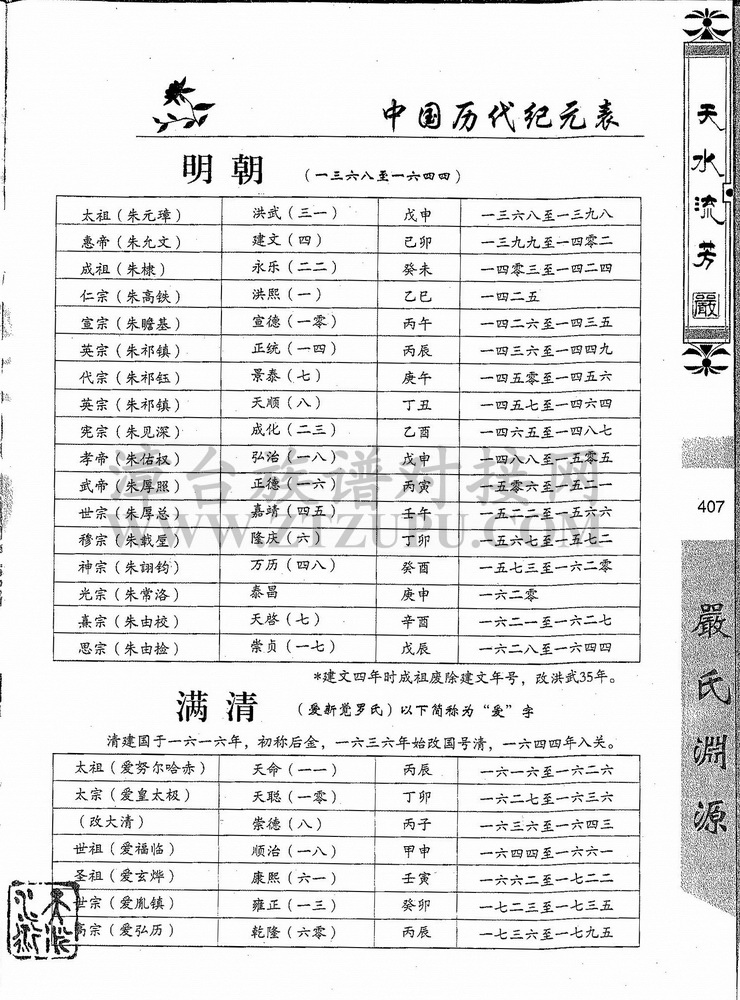 中国历代纪元表
明朝 (一三六八至一六四四)
太祖(朱元璋) 洪武(三一) 戊申 一三六八至一三九八
惠帝(朱允文) 建文(四) 己卯 一三九九至一四零二
成祖(朱棣) 永乐(二二) 癸未 一四零三至一四二四
仁宗(朱高铁) 洪熙(一) 乙巳 一四二五
宣宗(朱瞻基) 宣德(一零) 丙午 一四二六至一四三五
英宗(朱祁镇) 正统(一四) 丙辰 一四三六至一四四九
代宗(朱祁钰) 景泰(七) 庚午 一四五零至一四五六
英宗(朱祁镇) 天顺(八) 丁丑 一四五七至一四六四
宪宗(朱见深) 成化(二三) 乙酉 一四六五至一四八七
孝帝(朱佑权) 弘治(一八) 戊申 一四八八至一五零五
武帝(朱厚照) 正德(一六) 丙寅 一五零六至一五二一
世宗(朱厚总) 嘉靖(四五) 壬午 一五二二至一五六六
穆宗(朱载垕) 隆庆(六) 丁卯 一五六七至一五七二
神宗(朱翊钧) 万历(四八) 癸酉 一五七三至一六二零
光宗(朱常洛) 泰昌 庚申 一六二零
熹宗(朱由校) 天啓(七) 辛酉 一六二一至一六二七
思宗(朱由捡) 崇贞(一七) 戊辰 一六二八至一六四四
*建文四年时成祖废除建文年号，改洪武35年。
满清 (爱新觉罗氏)以下简称为“爱”字
清建国于一六一六年，初称后金，一六三六年始改国号清，一六四四年入关。
太祖(爱努尔哈赤) 天命(一一) 丙辰 一六一六至一六二六
太宗(爱皇太极) 天聪(一零) 丁卯 一六二七至一六三六
(改大清) 崇德(八) 丙子 一六三六至一六四三
世祖(爱福临) 顺治(一八) 甲申 一六四四至一六六一
圣祖(爱玄烨) 康熙(六一) 壬寅 一六六二至一七二二
世宗(爱胤镇) 雍正(一三) 癸卯 一七二三至一七三五
高宗(爱弘历) 乾隆(六零) 丙辰 一七三六至一七九五
天水流芳
嚴
407
嚴氏淵源
漳台族谱对接网
WWW.ZTZUPU.COM